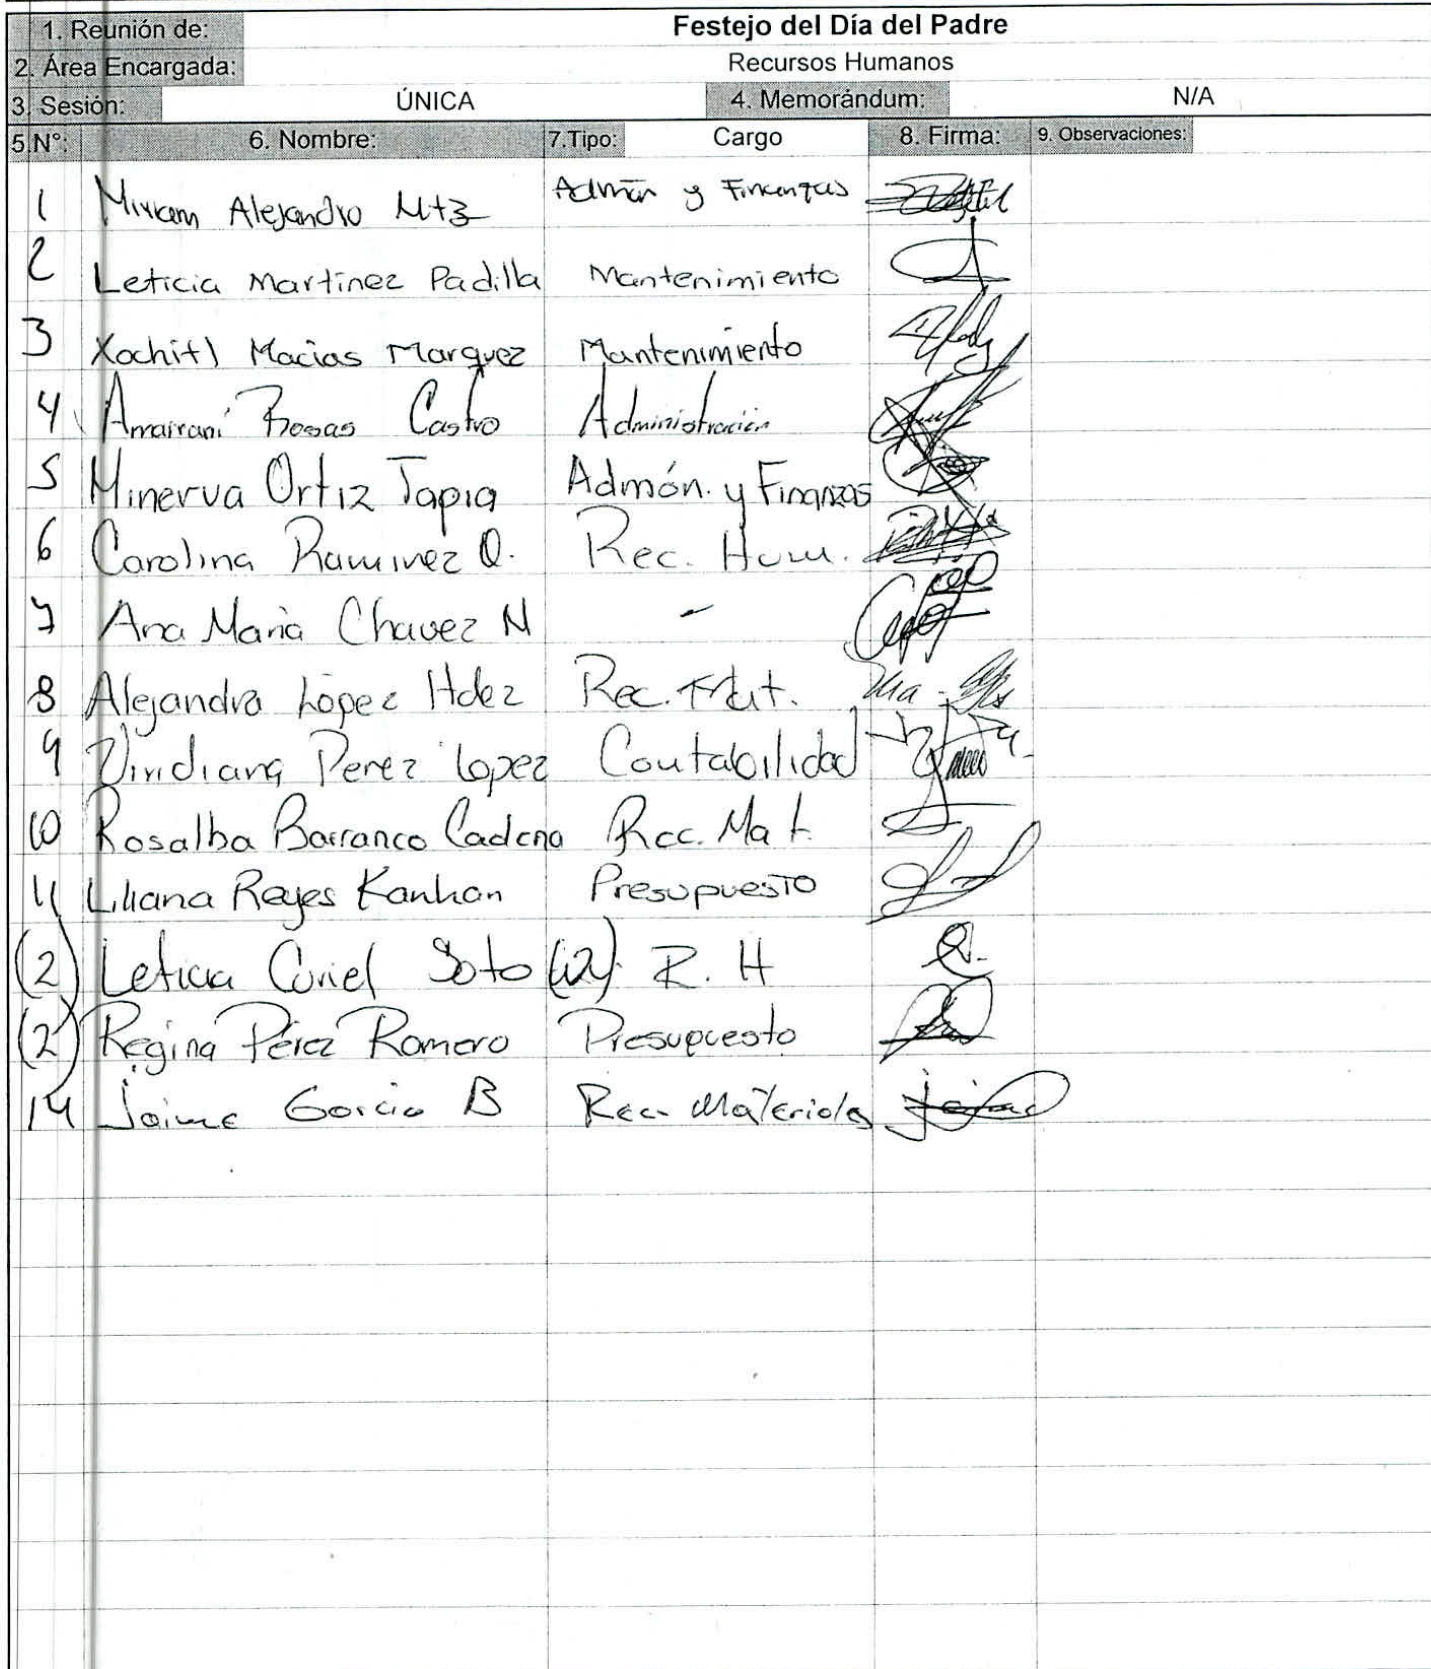 1. Reunión de: Festejo del Día del Padre
2. Área Encargada: Recursos Humanos
3. Sesión: ÚNICA 4. Memorándum: N/A
5.N°: 6. Nombre: 7.Tipo: Cargo 8. Firma: 9. Observaciones:
1 Miriam Alejandro Mtz Admón y Finanzas
2 Leticia Martínez Padilla Mantenimiento
3 Xochitl Macias Marquez Mantenimiento
4 Amairani Rosas Castro Administración
5 Minerva Ortiz Tapia Admón. y Finanzas
6 Carolina Ramirez Q. Rec. Hum.
7 Ana María Chavez N -
8 Alejandra López Hdez Rec. Mat.
9 Viridiana Perez Lopez Contabilidad
10 Rosalba Barranco Cadena Rec. Mat.
11 Liliana Reyes Kanhan Presupuesto
(2) Leticia Curiel Soto (12). R. H
(2) Regina Pérez Romero Presupuesto
14 Jaime Garcia B Rec. Materiales